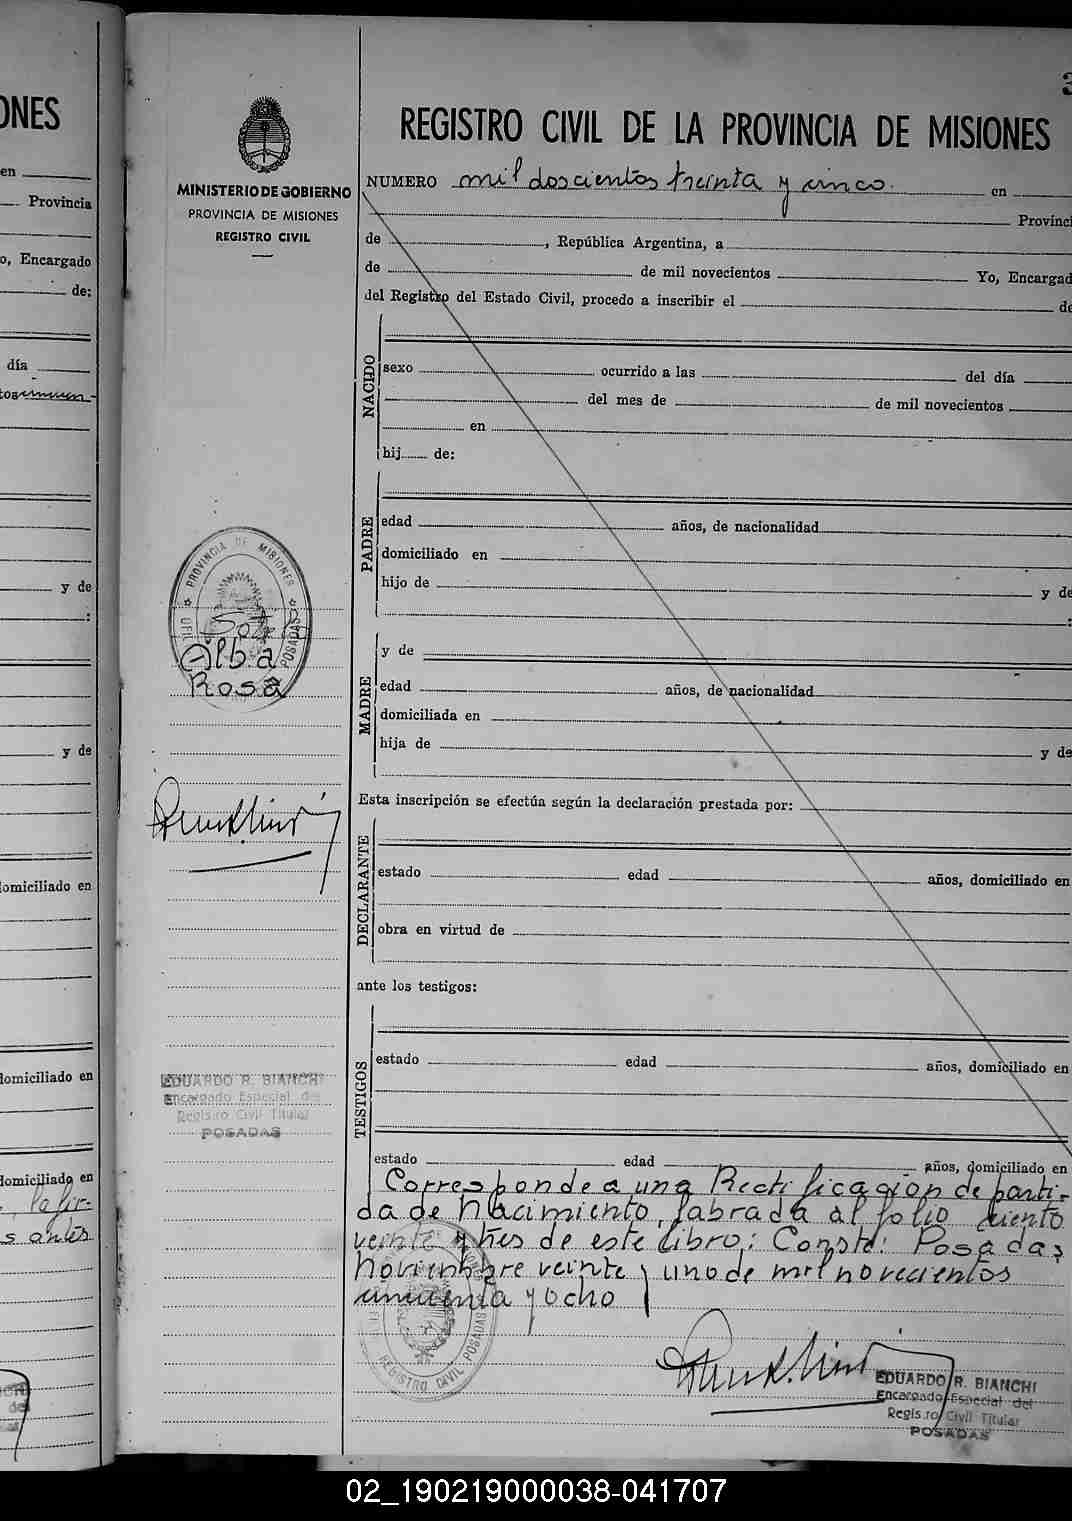 ONES
en
Provincia
o, Encargado
de:
día
y de
:
y de
domiciliado en
domiciliado en
domiciliado en
la fir-
s antes
3
MINISTERIO DE GOBIERNO
PROVINCIA DE MISIONES
REGISTRO CIVIL
PROVINCIA DE MISIONES
POSADAS
Soto
Alba
Rosa
EDUARDO R. BIANCHI
Encargado Especial del
Registro Civil Titular
POSADAS
REGISTRO CIVIL DE LA PROVINCIA DE MISIONES
NUMERO mil doscientos treinta y cinco. en
Provinci
de , República Argentina, a
de de mil novecientos Yo, Encargad
del Registro del Estado Civil, procedo a inscribir el de
NACIDO
sexo ocurrido a las del día
del mes de de mil novecientos
en
hij de:
PADRE
edad años, de nacionalidad
domiciliado en
hijo de y de
:
MADRE
y de
edad años, de nacionalidad
domiciliada en
hija de y de
Esta inscripción se efectúa según la declaración prestada por:
DECLARANTE
estado edad años, domiciliado en
obra en virtud de
ante los testigos:
TESTIGOS
estado edad años, domiciliado en
estado edad años, domiciliado en
Corresponde a una Rectificación de parti-
da de Nacimiento, labrada al folio ciento
veinte y tres de este libro: Conste: Posadas,
Noviembre veinte y uno de mil novecientos
cincuenta y ocho
REGISTRO CIVIL POSADAS
EDUARDO R. BIANCHI
Encargado Especial del
Regis.ro Civil Titular
POSADAS
02_190219000038-041707